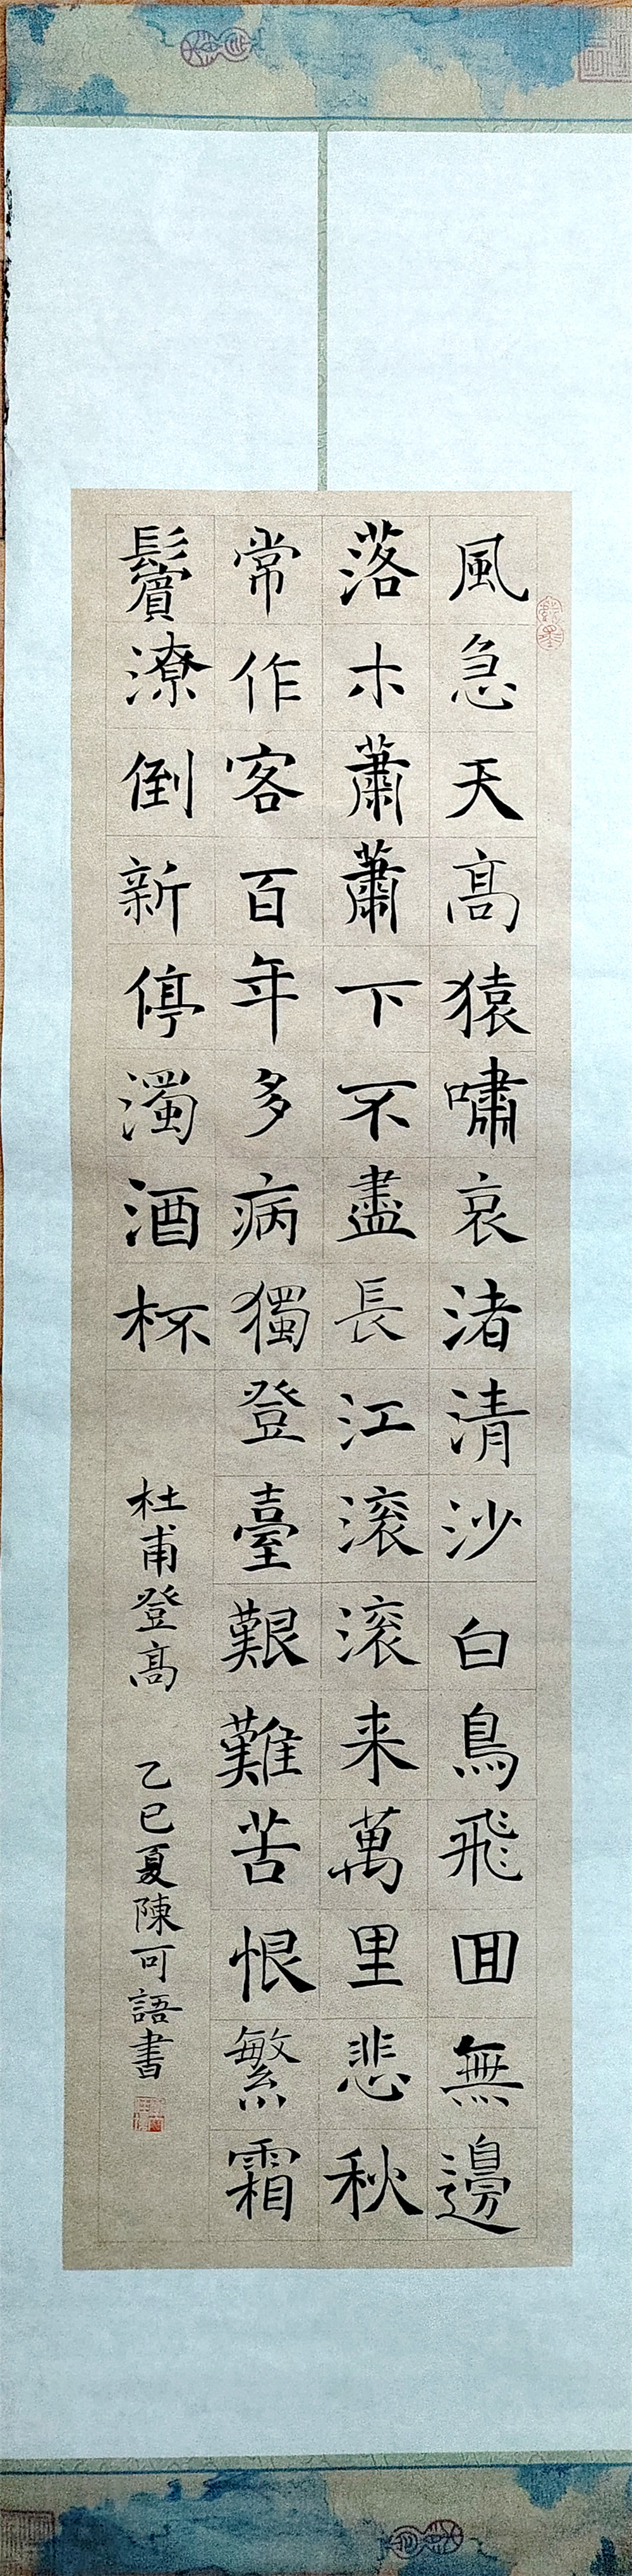 風急天高猿嘯哀渚清沙白鳥飛囬無邊
落木蕭蕭下不盡長江滚滚来萬里悲秋
常作客百年多病獨登臺艱難苦恨繁霜
鬢潦倒新停濁酒杯
杜甫登高 乙巳夏陳可語書